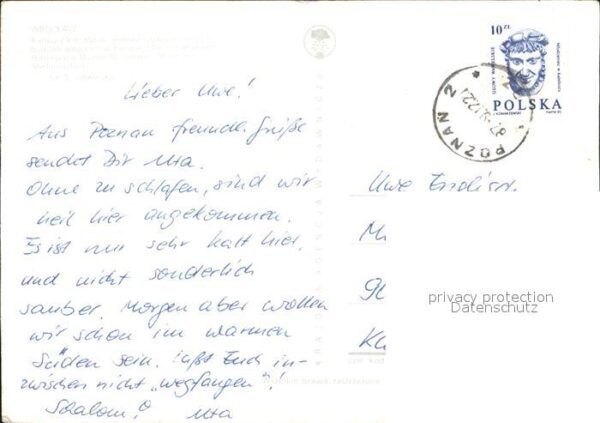 Lieber Uwe!
Aus Poznan freundl. Grüße
sendet Dir Uta.
Ohne zu schlafen, sind wir
heil hier angekommen.
Es ist nur sehr kalt hier,
und nicht sonderlich
sauber. Morgen aber wollen
wir schon im warmen
Süden sein. Laßt Euch in-
zwischen nicht "wegfangen"!
Schalom! Uta
10 zł
POLSKA
POZNAŃ 2
Uwe
privacy protection
Datenschutz